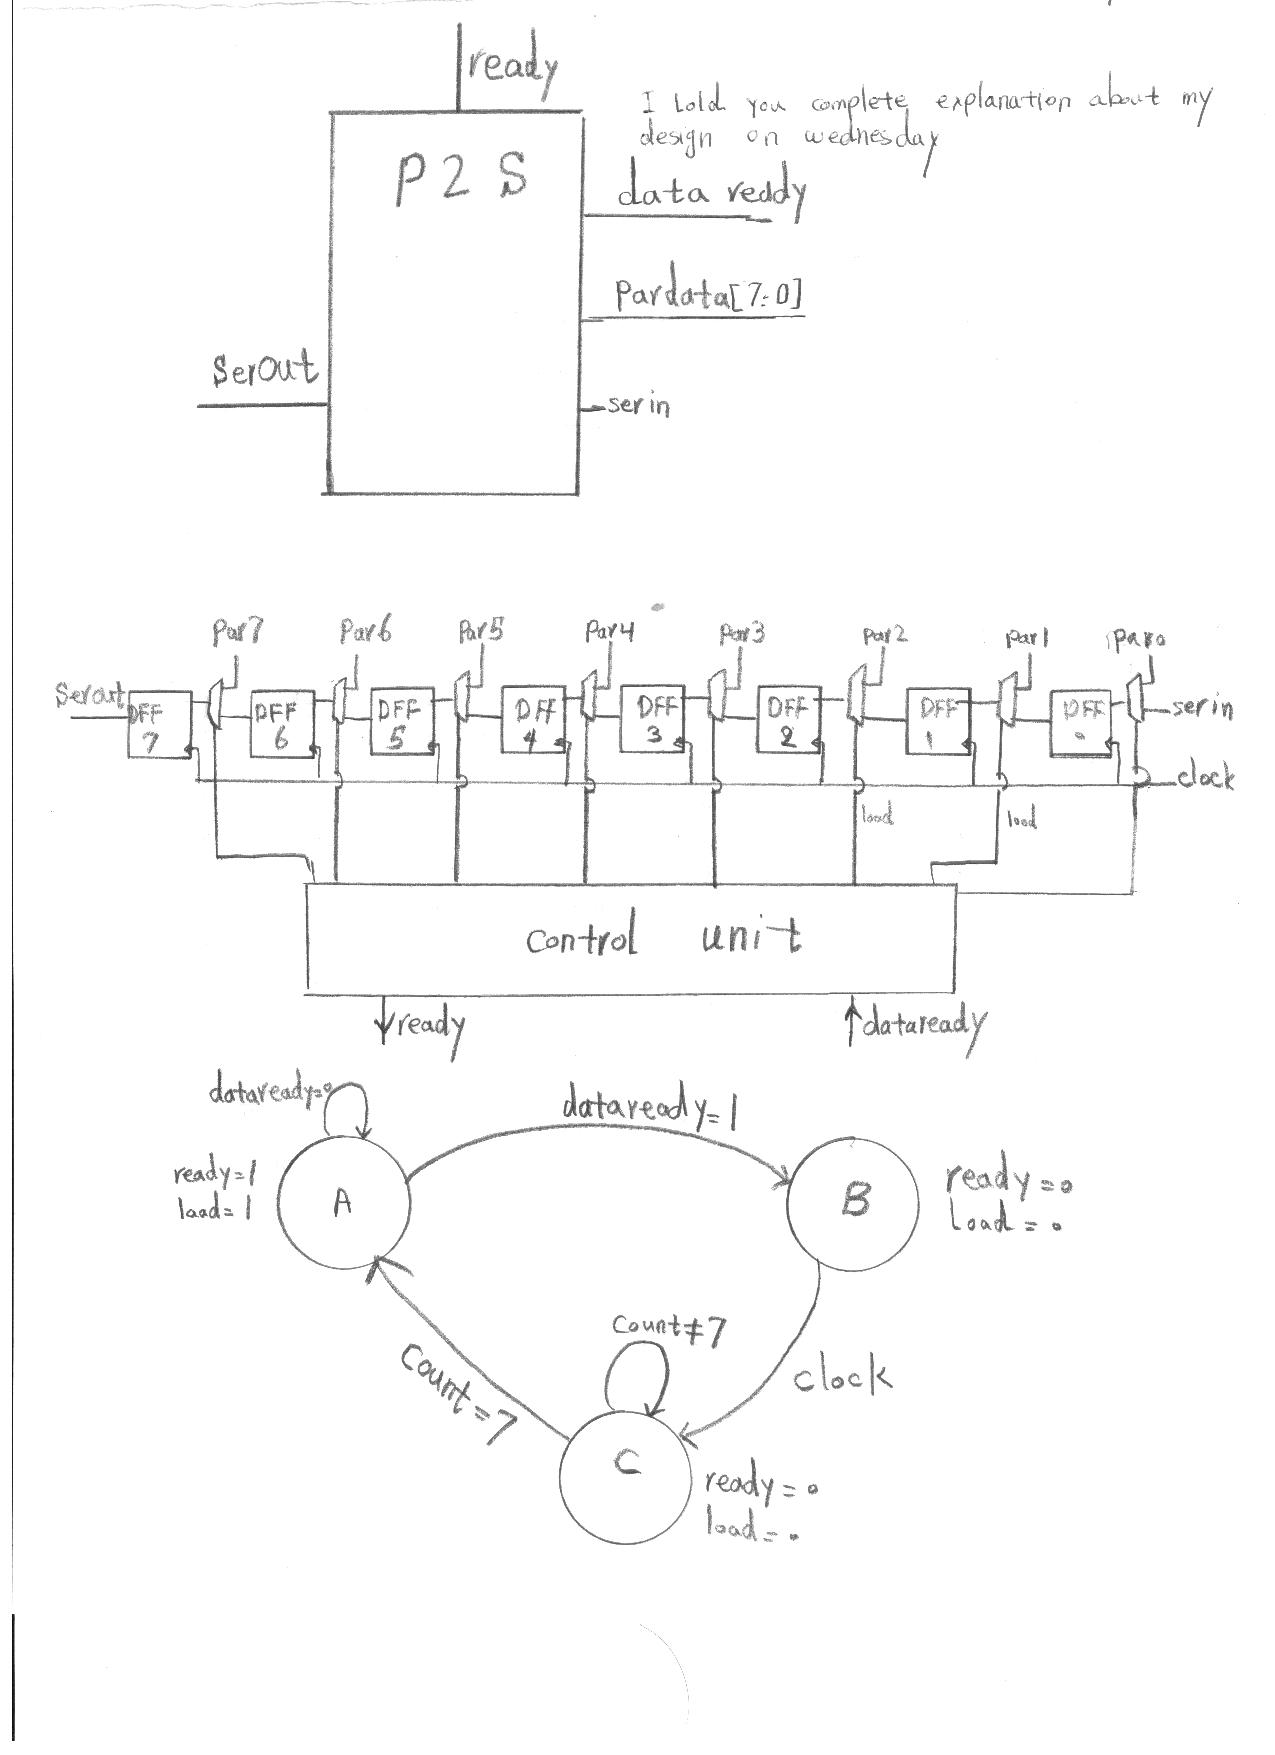 ready
I told you complete explanation about my
design on wednesday
P2S
data ready
Pardata[7:0]
SerOut
serin
Par7 Par6 Par5 Par4 Par3 Par2 Par1 paro
Serout DFF 7 DFF 6 DFF 5 DFF 4 DFF 3 DFF 2 DFF 1 DFF 0 serin
clock
load load
control unit
ready dataready
dataready=0
dataready=1
ready=1
load=1
A
B
ready=0
Load=0
Count≠7
Count=7
clock
C
ready=0
load=0